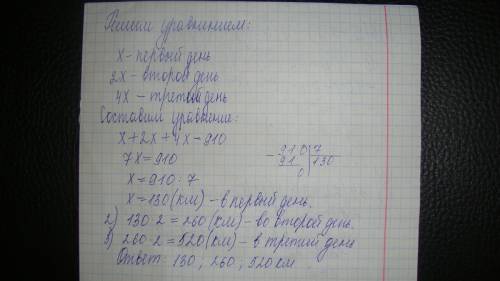 Решим уравнением:
x - первый день
2x - второй день
4x - третий день
Составим уравнение:
x + 2x + 4x = 910
7x = 910
x = 910 : 7
x = 130 (км) - в первый день.
- 910 | 7
91 | 130
0
2) 130 · 2 = 260 (км) - во второй день.
3) 260 · 2 = 520 (км) - в третий день
Ответ: 130 ; 260 ; 520 км